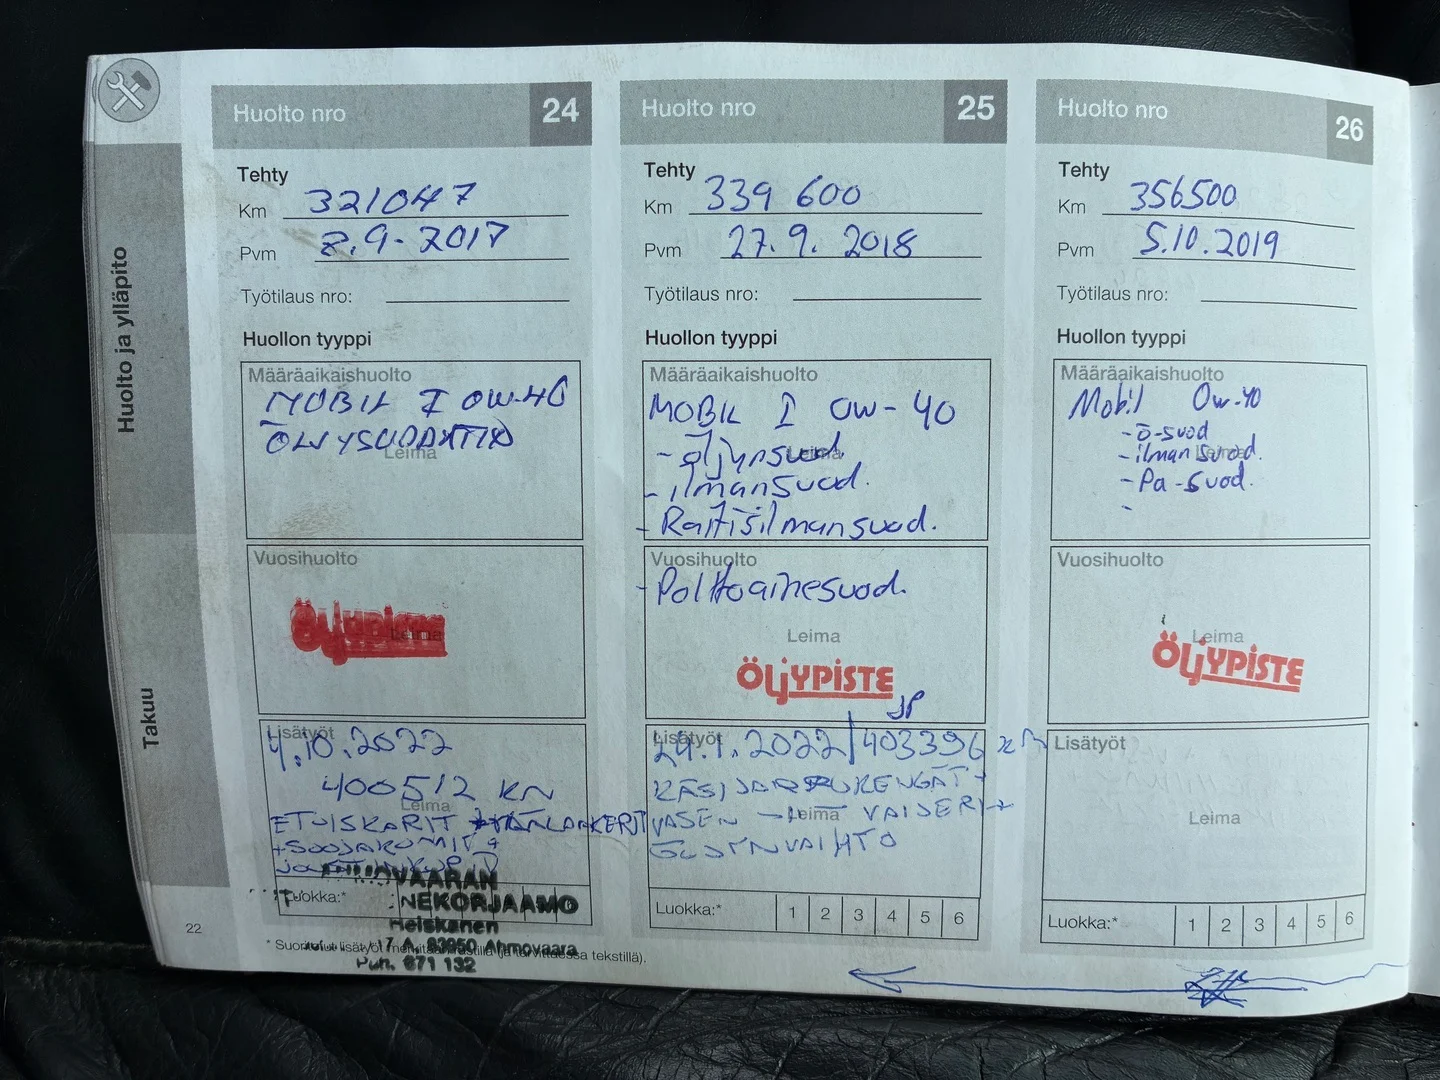 Huolto ja ylläpito
Takuu
Huolto nro 24
Tehty
Km 321047
Pvm 2.9.2017
Työtilaus nro:
Huollon tyyppi
Määräaikaishuolto
MOBIL I 0W-40
Leima
Vuosihuolto
ÖLJYPISTE
Leima
Lisätyöt
4.10.2022
400512 KM
Leima
ETUISKARIT
Luokka:*
NEKORJAAMO
Heiskanen
17 A, 83950 Ahmovaara
Puh. 671 132
22
Huolto nro 25
Tehty
Km 339 600
Pvm 27.9. 2018
Työtilaus nro:
Huollon tyyppi
Määräaikaishuolto
MOBIL I 0W-40
- öljynsuod.
Leima
- ilmansuod.
- Raitisilmansuod.
Vuosihuolto
- Polttoainesuod.
Leima
ÖLJYPISTE
JP
Lisätyöt
403396 KM
KÄSIJARRU
VASEN
Leima
VAIJERI +
VAIHTO
Luokka:* 1 2 3 4 5 6
Huolto nro 26
Tehty
Km 356500
Pvm 5.10.2019
Työtilaus nro:
Huollon tyyppi
Määräaikaishuolto
Mobil 0w-40
- ö-suod
- ilmansuod.
Leima
- Pa-suod.
-
Vuosihuolto
Leima
ÖLJYPISTE
Lisätyöt
Leima
Luokka:* 1 2 3 4 5 6